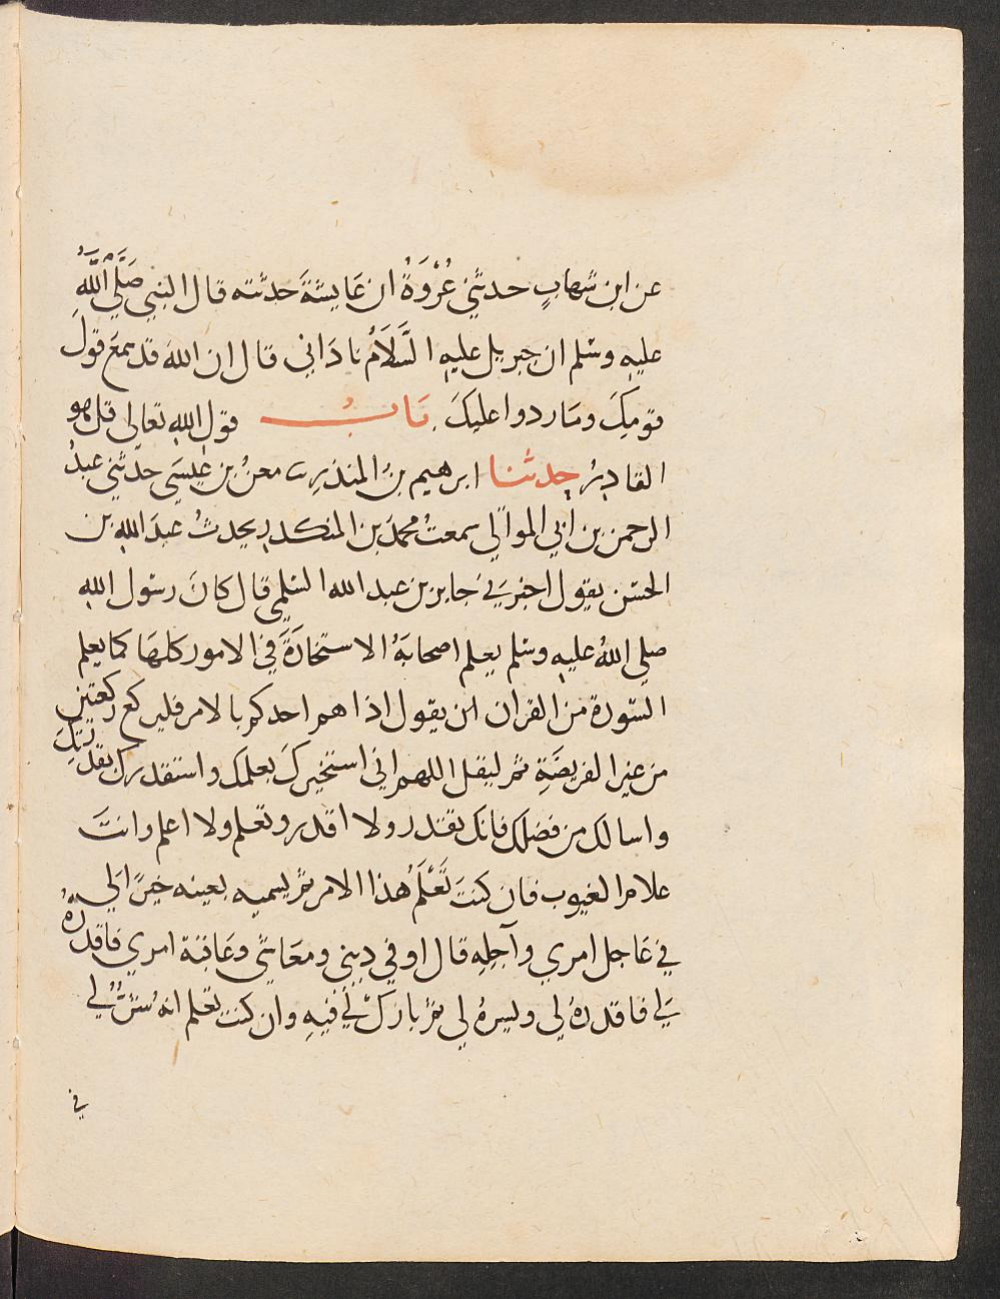 عن ابن شهابٍ حدثني عُرْوَةُ ان عَايشةَ حدثته قال النبي صَلَّي اللَّهُ
عليهِ وسلم ان جبريل عليهِ السَّلَامُ نادَاني قال ان اللهَ قد سمعَ قولَ
قومِكَ ومَا ردوا عليكَ بَابُ قولِ اللهِ تعالى قل هو
القادِرُ حدثنا ابرهيم بنُ المنذرِ ثنا معنُ بن عِيسَى حدثني عبدُ
الرحمن بن ابي الموالي سمعتُ محمدَ بن المنكدر يحدثُ عبدَ اللهِ بن
الحسن يقول اخبرَني جابر بن عبد الله السَّلمي قال كانَ رسول اللهِ
صلي اللهُ عليهِ وسلم يعلم اصحابَهُ الاستخارَةَ في الامور كلهَا كما يعلم
السّورة من القران ان يقول اذا هم احدكم بالامر فليركع ركعتين
من غير الفريضَةِ ثم ليقل اللهم اني استخيرك بعلمك واستقدرك بقدرتِكَ
واسالك من فضلك فانك تقدر ولا اقدر وتعلم ولا اعلم وانتَ
علام الغيوب فان كنتَ تَعْلَمُ هٰذا الامر ثم يسميه بعينه خيرًا لي
في عَاجل امري وآجلِهِ قال او في دِيني ومعَاشي وعَاقبَة امري فاقدُرْهُ
لي فاقدرهُ لي ويسرهُ لي ثم بارك لي فيهِ وان كنت تعلم انهُ شرٌّ لي
في